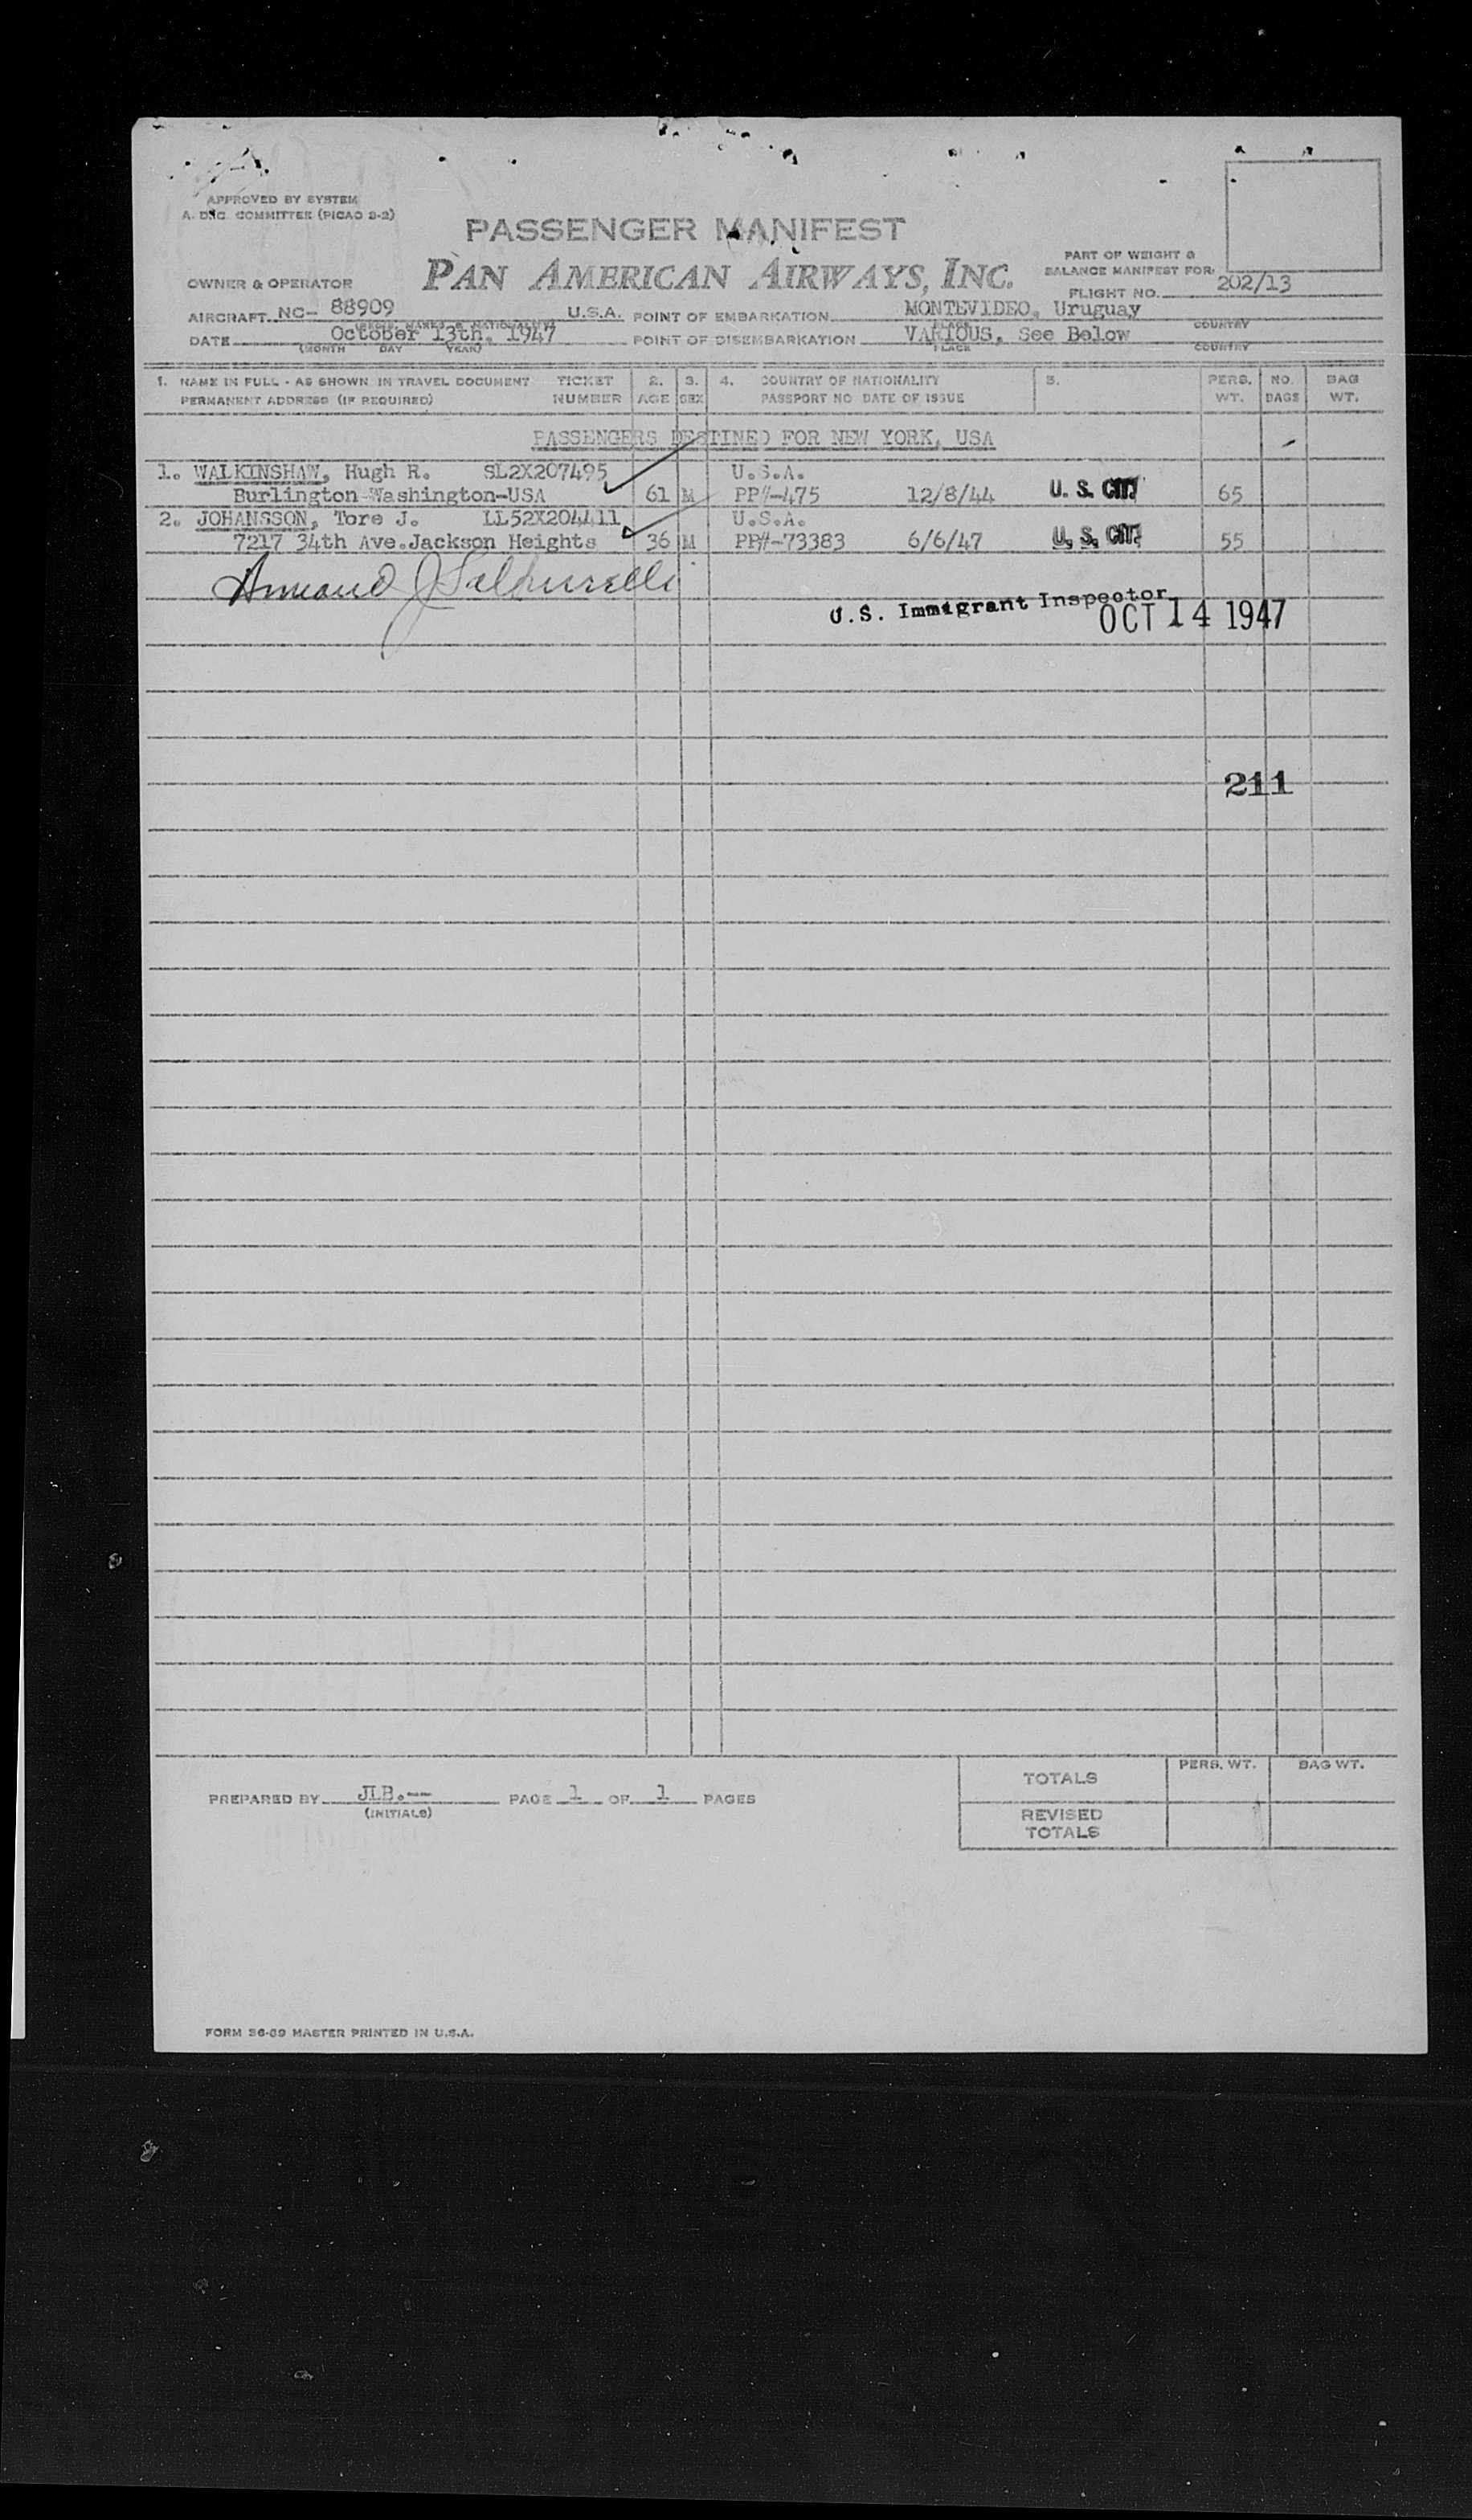 APPROVED BY SYSTEM
A. DOC. COMMITTEE (PICAO 2-2)
PASSENGER MANIFEST
PAN AMERICAN AIRWAYS, INC.
PART OF WEIGHT &
BALANCE MANIFEST FOR:
OWNER & OPERATOR
FLIGHT NO. 202/13
AIRCRAFT NC- 88909 U.S.A. POINT OF EMBARKATION MONTEVIDEO, Uruguay
PLACE COUNTRY
DATE October 13th, 1947 POINT OF DISEMBARKATION VARIOUS, See Below
(MONTH DAY YEAR) PLACE COUNTRY
1. NAME IN FULL - AS SHOWN IN TRAVEL DOCUMENT TICKET 2. 3. 4. COUNTRY OF NATIONALITY 5. PERS. NO. BAG
PERMANENT ADDRESS (IF REQUIRED) NUMBER AGE SEX PASSPORT NO DATE OF ISSUE WT. BAGS WT.
PASSENGERS DESTINED FOR NEW YORK, USA
1. WALKINSHAW, Hugh R. SL2X207495 U.S.A.
Burlington-Washington-USA 61 M PP#-475 12/8/44 U. S. CIT. 65
2. JOHANSSON, Tore J. LL52X204411 U.S.A.
7217 34th Ave.Jackson Heights 36 M PP#-73383 6/6/47 U. S. CIT. 55
Armand J
U.S. Immigrant Inspector
OCT 14 1947
211
PERS. WT. BAG WT.
TOTALS
PREPARED BY JLB.-- PAGE 1 OF 1 PAGES
(INITIALS)
REVISED
TOTALS
FORM 36-69 MASTER PRINTED IN U.S.A.